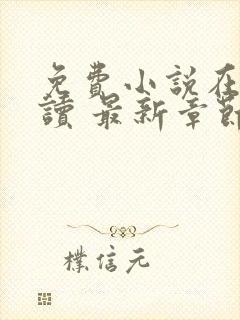 免費小說在
讀 最新章節
樸信元